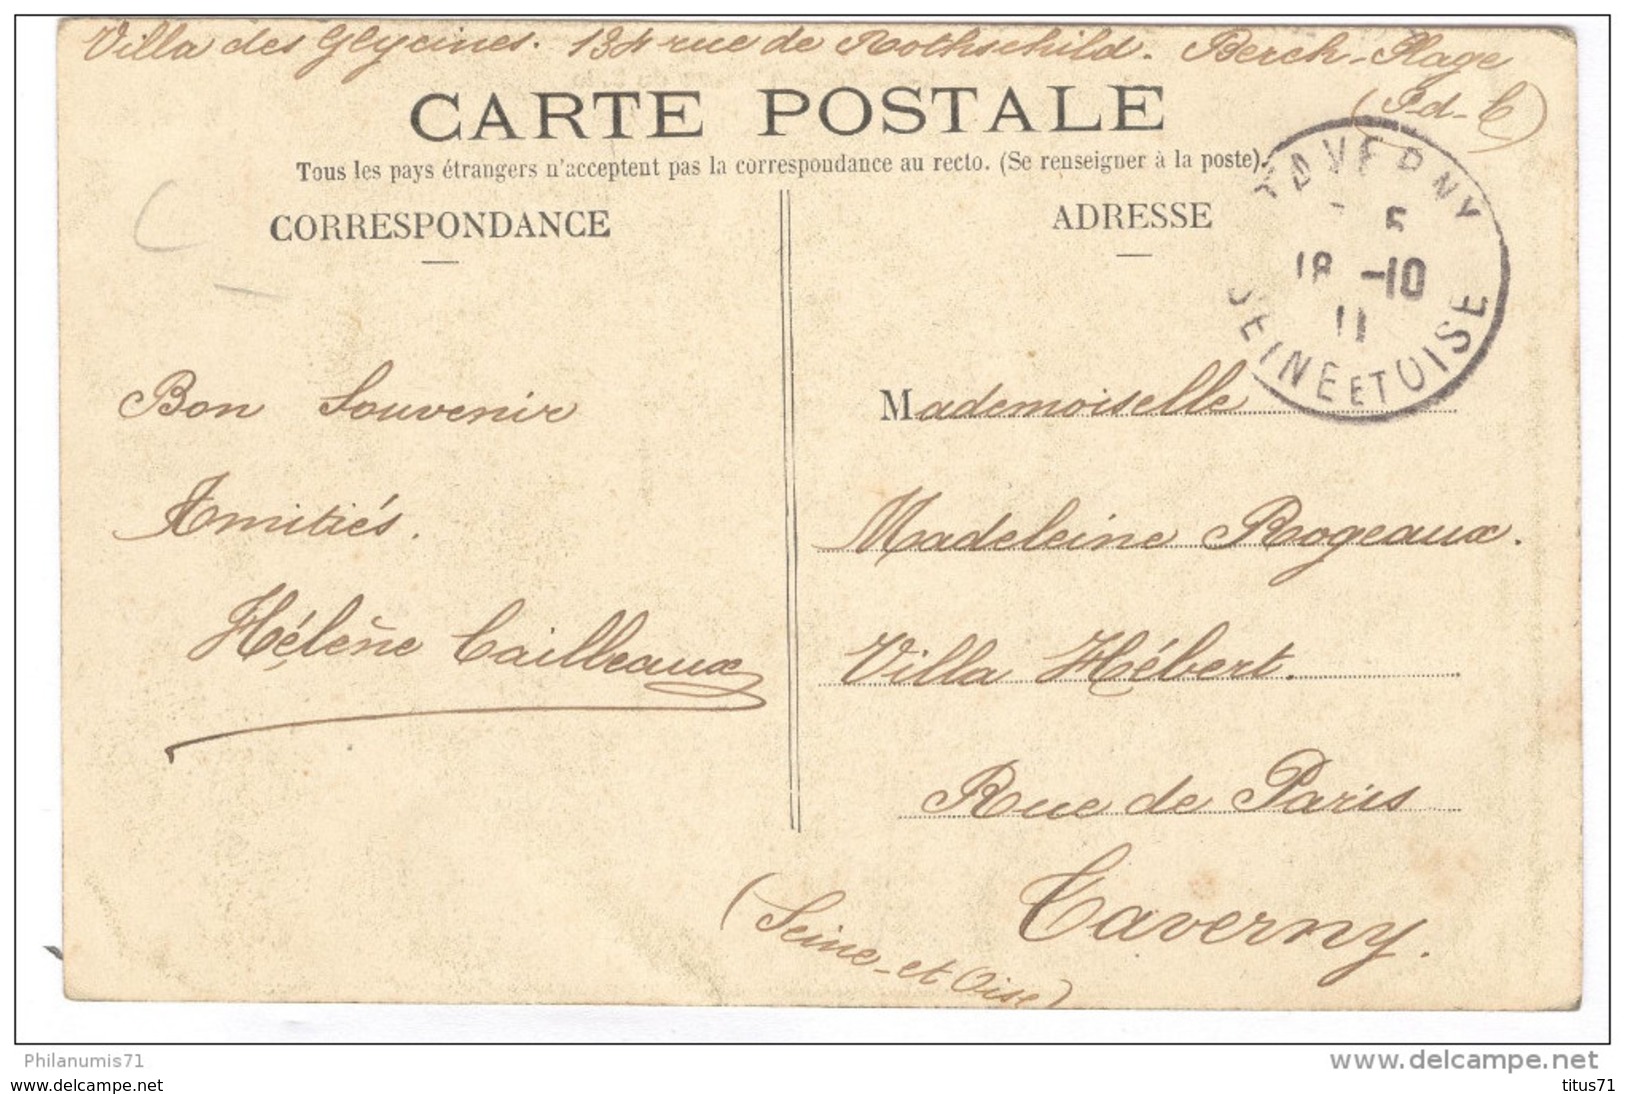 Villa des Glycines. 134 rue de Rothschild. Berck-Plage
(P-d-C)
CARTE POSTALE
Tous les pays étrangers n'acceptent pas la correspondance au recto. (Se renseigner à la poste).
CORRESPONDANCE
Bon Souvenir
Amitiés.
Hélène Cailleaux
ADRESSE
TAVERNY
5
18 -10
11
SEINE ET OISE
Mademoiselle
Madeleine Rogeaux.
Villa Hébert.
Rue de Paris
Taverny.
(Seine-et Oise)
Philanumis71
www.delcampe.net
www.delcampe.net
titus71